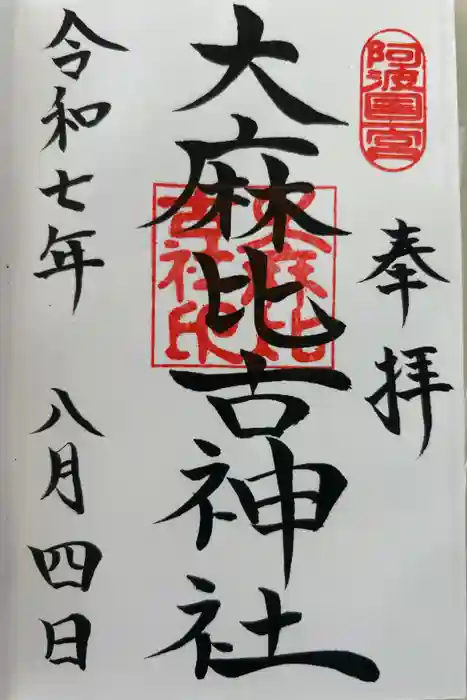 阿波國一宮
奉拝
大麻比古神社
大麻比古社印
令和七年 八月四日